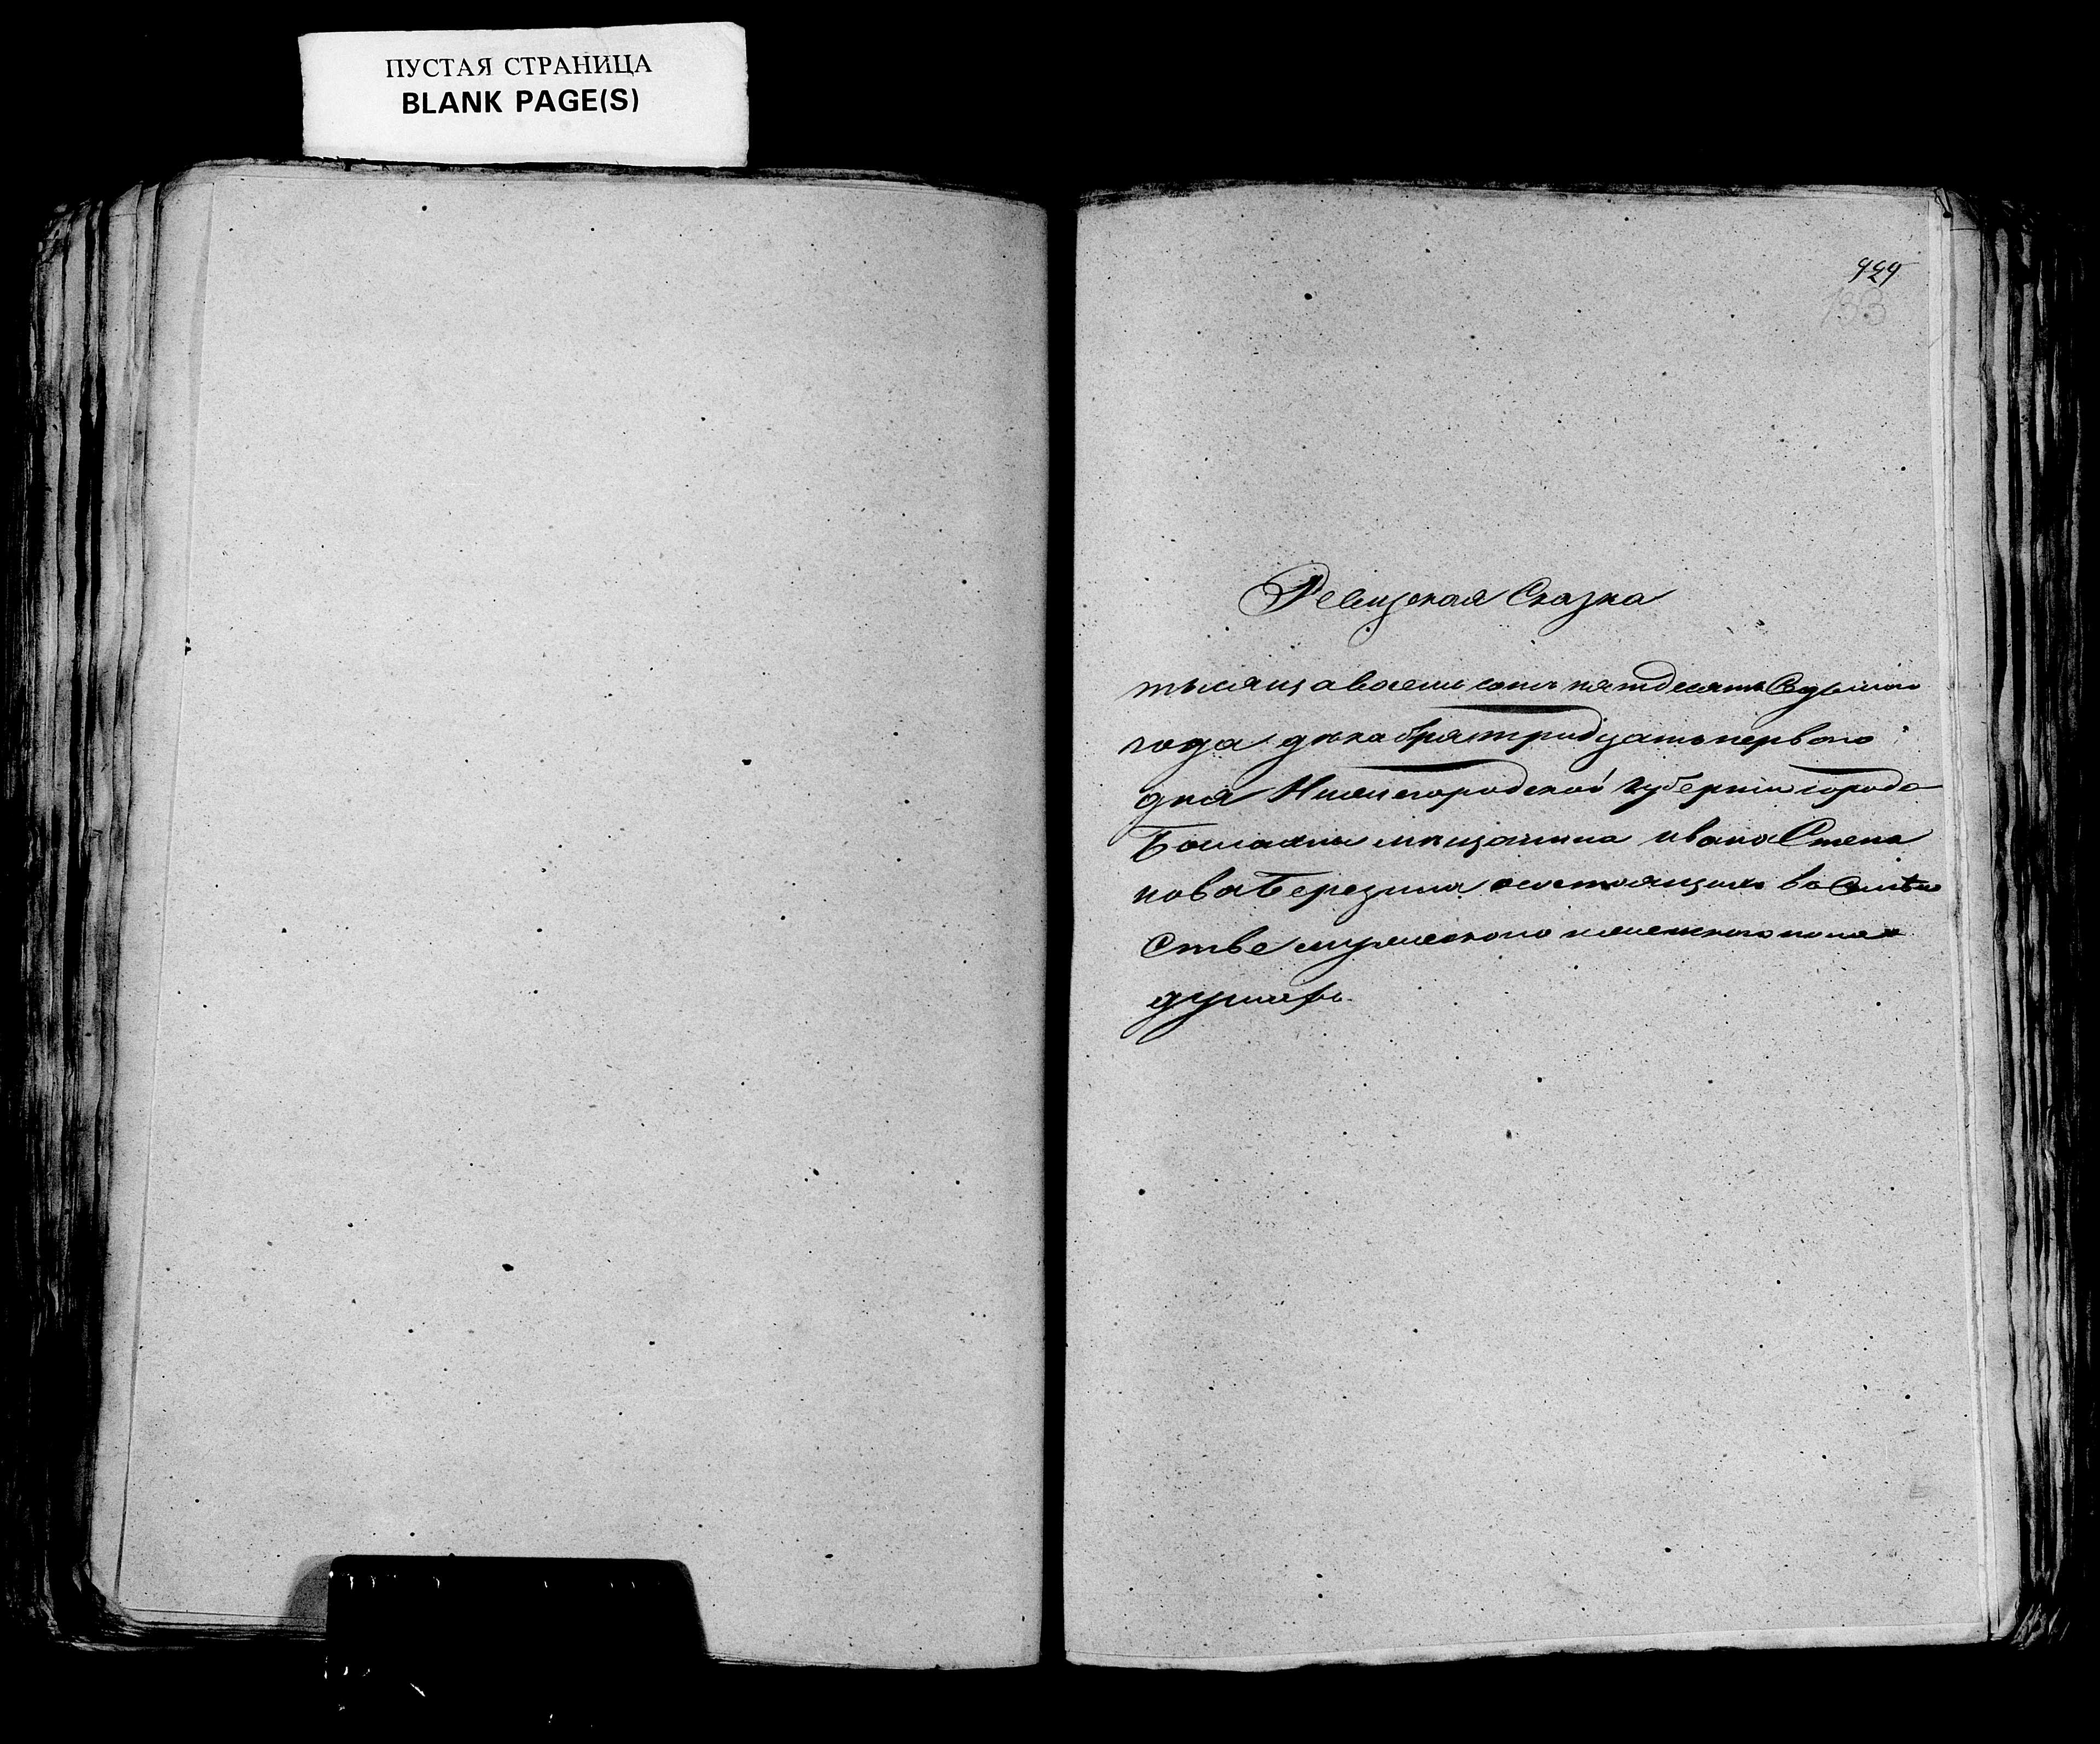 ПУСТАЯ СТРАНИЦА
BLANK PAGE(S)
133
Ревизская Сказка
тысяща восемь сотъ пятдесятъ Седьмаго
года декабря тридцать перваго
дня Нижегородской губернии города
Балахны мещанина ивана Степа
нова Березина состоящихъ во
стве мужескаго и женскаго пола
душахъ.